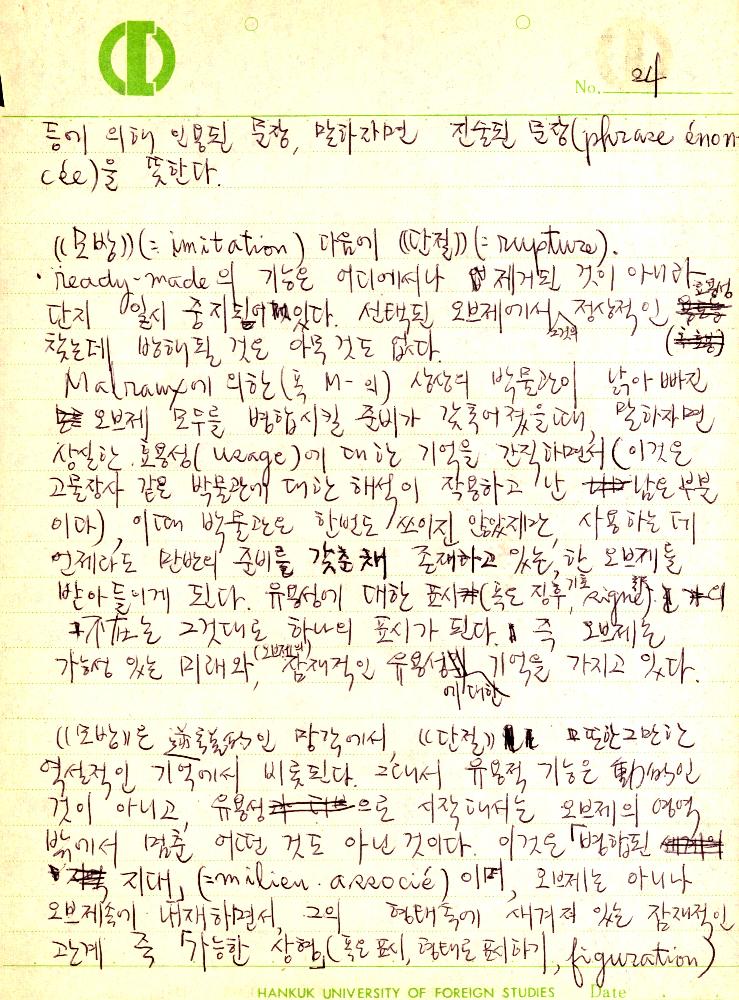 No. 24
등에 의해 인용된 문장, 말하자면 진술된 문장(phrase énon-
cée)을 뜻한다.
《모방》(= imitation) 다음에 《단절》(= rupture).
ready-made의 기능은 어디에서나 제거된 것이 아니라
단지 일시 중지되어 있다. 선택된 오브제에서 그것의 정상적인 효용성
찾는데, 방해될 것은 아무것도 없다.
Malraux에 의한(혹 M-의) 상상의 박물관이 낡아 빠진
오브제 모두를 병합시킬 준비가 갖추어졌을때, 말하자면
상실한 효용성(usage)에 대한 기억을 간직하면서(이것은
고물장사 같은 박물관에 대한 해석이 작용하고 난 남은 부분
이다), 이때 박물관은 한번도 쓰이진 않았지만, 사용하는데
언제라도 만반의 준비를 갖춘채 존재하고 있는, 한 오브제를
받아들이게 된다. 유용성에 대한 표시(혹은 징후, 기호, signe)의
不在는 그것대로 하나의 표시가 된다. 즉 오브제는
가능성 있는 미래와, (오브제의) 잠재적인 유용성에 대한 기억을 가지고 있다.
《모방》은 인 망각에서, 《단절》 또한 그만한
역설적인 기억에서 비롯된다. 그래서 유용적 기능은 動的인
것이 아니고, 유용성으로 시작해서는 오브제의 영역
밖에서 멈춘 어떤 것도 아닌 것이다. 이것은 「병합된
지대」(=milieu associé)이며, 오브제는 아니나
오브제속에 내재하면서, 그의 형태속에 새겨져 있는 잠재적인
관계 즉 「가능한 상형」(혹은 표시, 형태로 표시하기, figuration)
HANKUK UNIVERSITY OF FOREIGN STUDIES Date